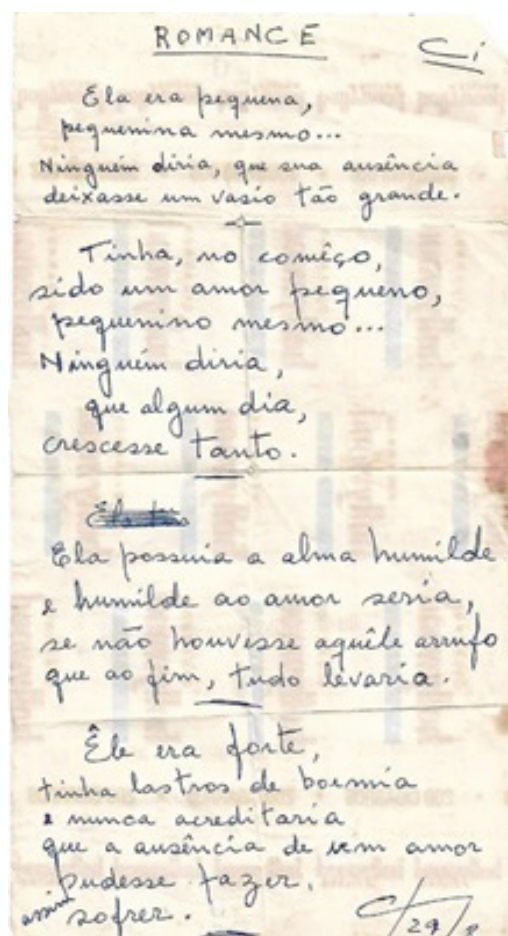 ROMANCE
Ci
Ela era pequena,
pequenina mesmo...
Ninguém diria, que sua ausência
deixasse um vasio tão grande.
Tinha, no comêço,
sido um amor pequeno,
pequenino mesmo...
Ninguém diria,
que algum dia,
crescesse tanto.
Ela possuia a alma humilde
e humilde ao amor seria,
se não houvesse aquêle arrufo
que ao fim, tudo levaria.
Êle era forte,
tinha lastros de boemia
e nunca acreditaria
que a ausência de um amor
pudesse fazer,
assim sofrer.
29/8